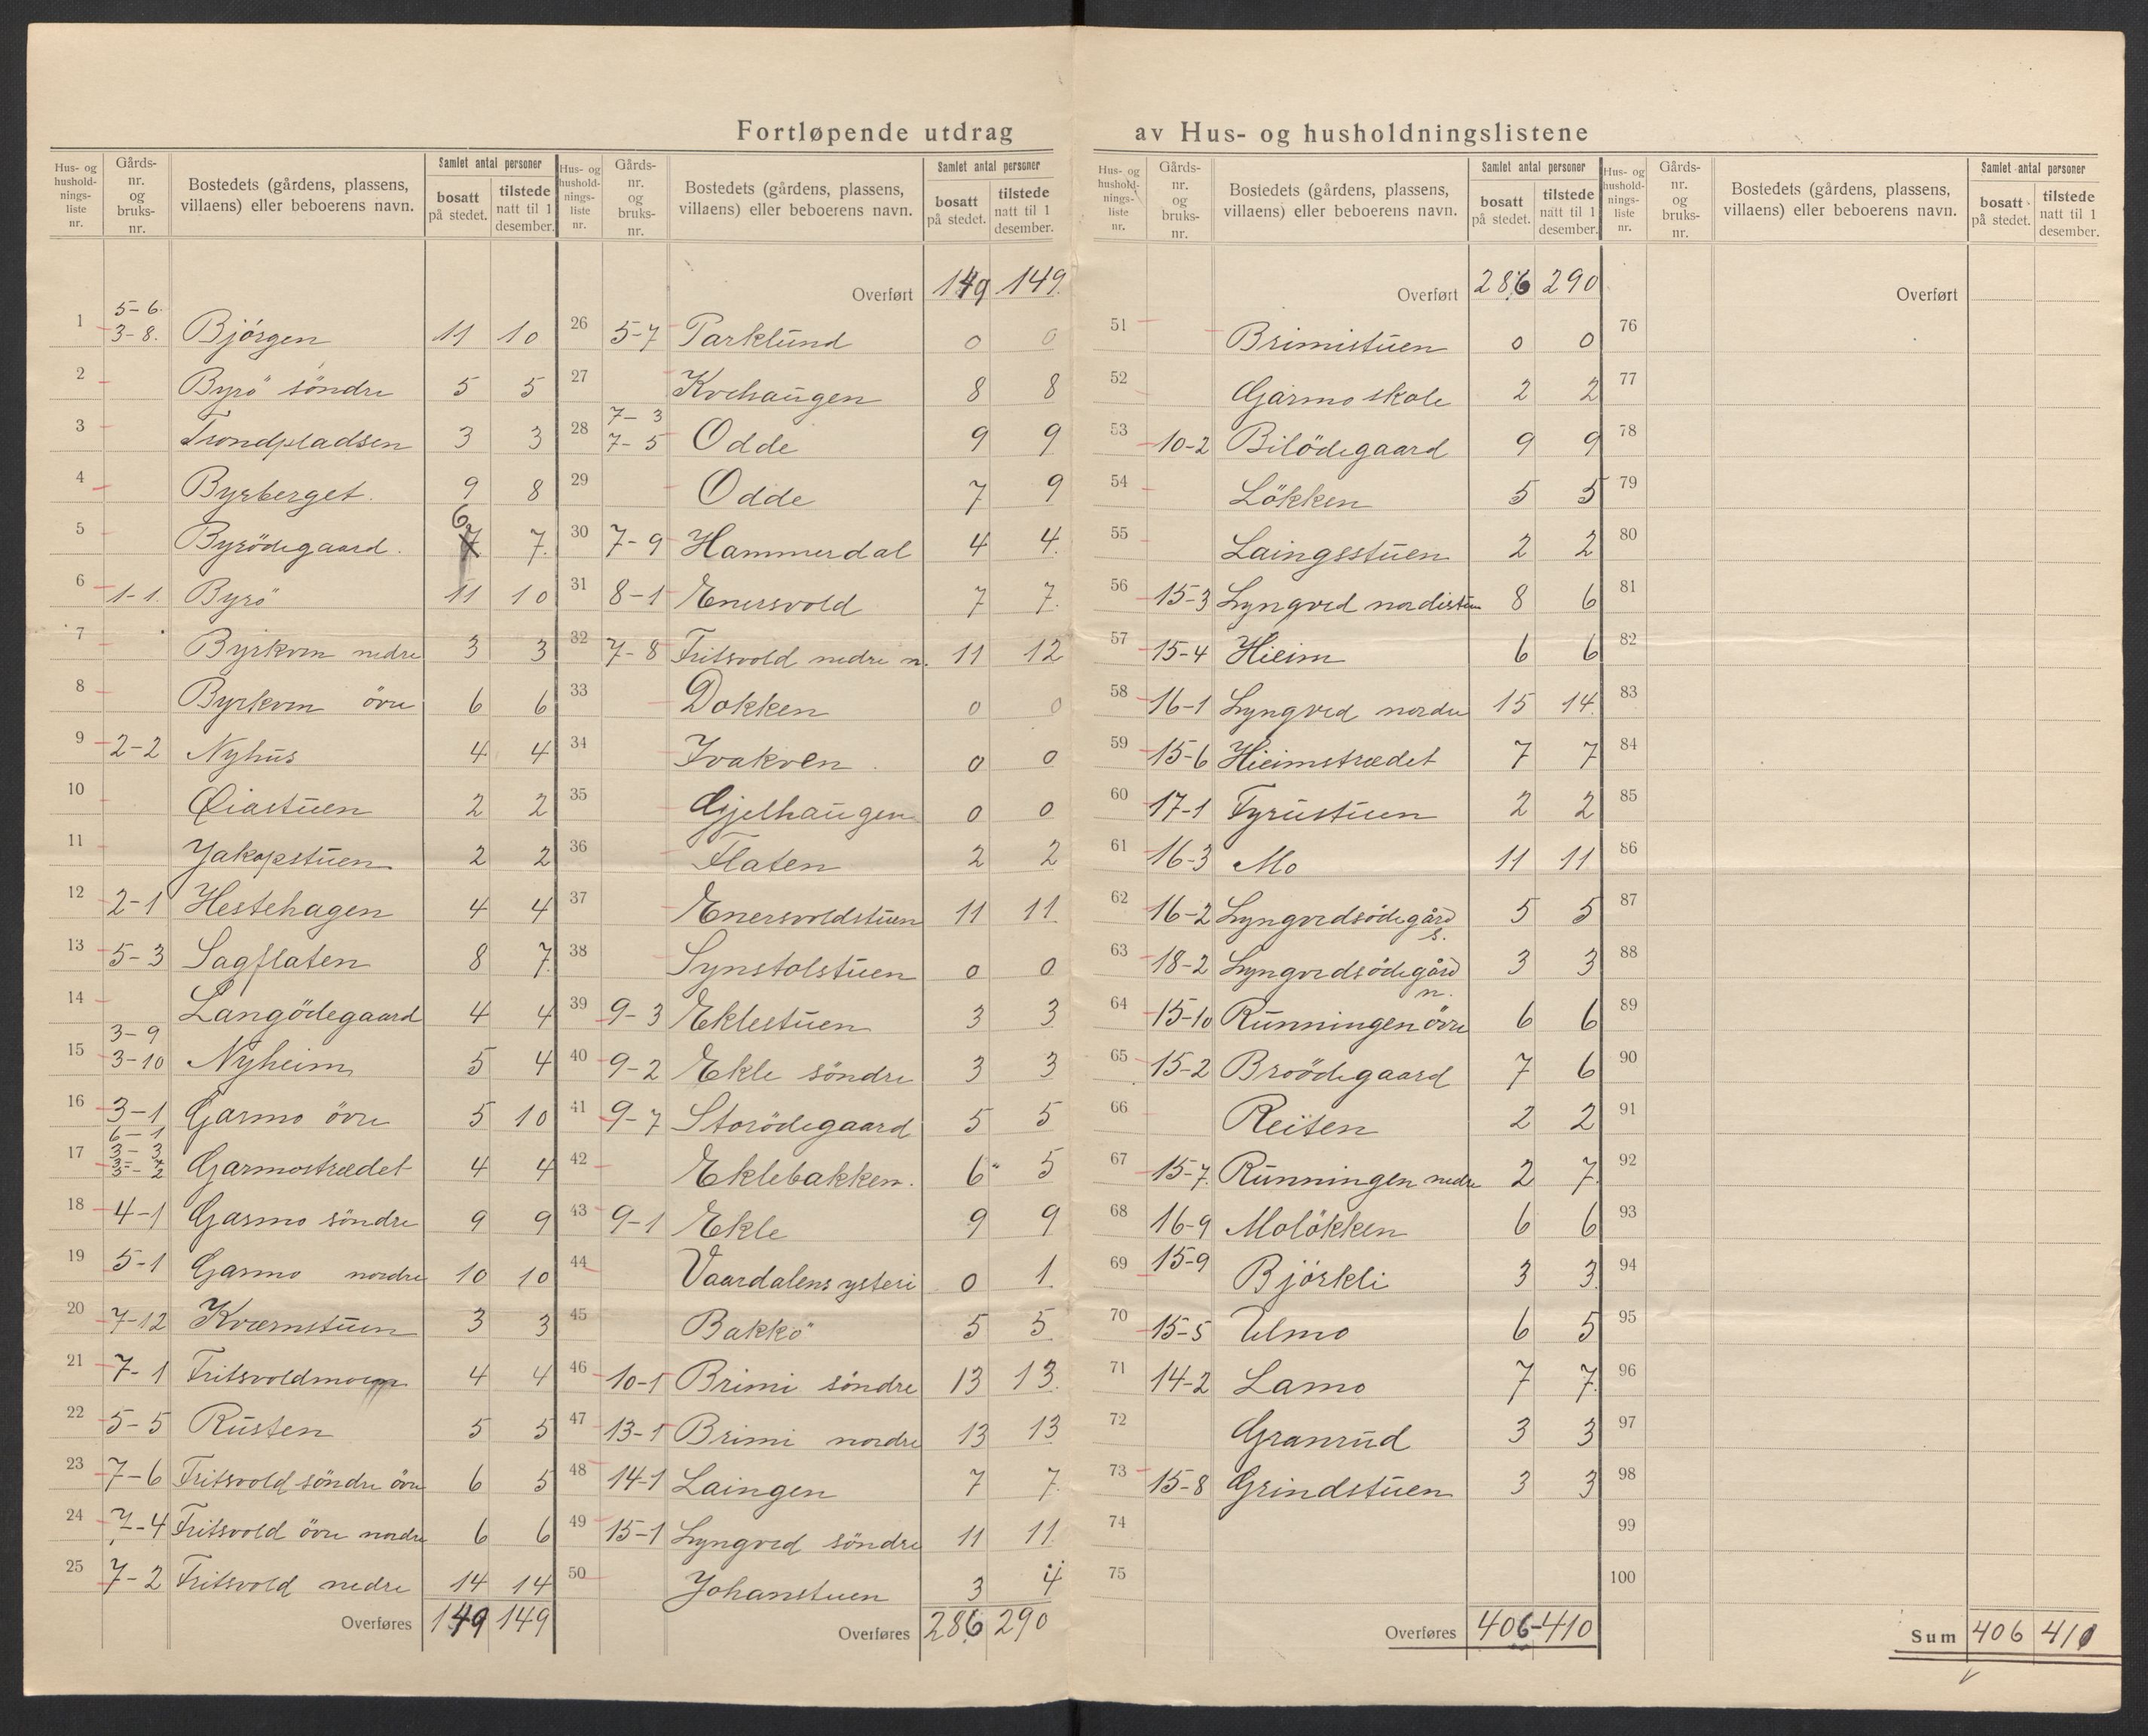 Fortløpende utdrag av Hus- og husholdningslistene
Hus- og husholdnings-liste nr. | Gårds-nr. og bruks-nr. | Bostedets (gårdens, plassens, villaens) eller beboerens navn. | Samlet antal personer | bosatt på stedet. | tilstede natt til 1 desember.
1 | 5-6. 3-8. | Bjørgen | 11 | 10
2 | Byrö söndre | 5 | 5
3 | Trondpladsen | 3 | 3
4 | Byrberget. | 9 | 8
5 | Byrödegaard. | 6 7 | 7.
6 | 1-1. | Byrö | 11 | 10
7 | Byrkvrn nedre | 3 | 3
8 | Byrkvrn övre | 6 | 6
9 | 2-2 | Nyhus | 4 | 4
10 | Öiastuen | 2 | 2
11 | Jakopstuen | 2 | 2
12 | 2-1 | Hestehagen | 4 | 4
13 | 5-3 | Sagflaten | 8 | 7.
14 | Langödegaard | 4 | 4
15 | 3-9 3-10 | Nyheim | 5 | 4
16 | 3-1 | Garmo övre | 5 | 10
17 | 6-1 3-3 | Garmostrædet | 4 | 4
18 | 4-1 | Garmo söndre | 9 | 9
19 | 5-1 | Garmo nordre | 10 | 10
20 | 7-12 | Kværnstuen | 3 | 3
21 | 7-1 | 4 | 4
22 | 5-5 | Rusten | 5 | 5
23 | 7-6 | Fritsvold söndre övre | 6 | 5
24 | 7-4 | Fritsvold övre nordre | 6 | 6
25 | 7-2 | Fritsvold nedre | 14 | 14
Overføres | 149 | 149
Hus- og husholdnings-liste nr. | Gårds-nr. og bruks-nr. | Bostedets (gårdens, plassens, villaens) eller beboerens navn. | Samlet antal personer | bosatt på stedet. | tilstede natt til 1 desember.
Overført | 149 | 149.
26 | 5-7 | Parklund | 0 | 0
27 | Kvehaugen | 8 | 8
28 | 7-3 7-5 | Odde | 9 | 9
29 | Odde | 7 | 9
30 | 7-9 | Hammerdal | 4 | 4.
31 | 8-1 | Enersvold | 7 | 7.
32 | 7-8 | Fritsvold nedre n. | 11 | 12
33 | Dokken | 0 | 0
34 | Ivakven. | 0 | 0
35 | Gjelhaugen | 0 | 0
36 | Flaten | 2 | 2
37 | Enersvoldstuen | 11 | 11.
38 | Synstolstuen | 0 | 0
39 | 9-3 | Eklestuen | 3 | 3
40 | 9-2 | Ekle söndre | 3 | 3
41 | 9-7 | Storödegaard | 5 | 5
42 | Eklebakken. | 6 | 5
43 | 9-1 | Ekle | 9 | 9
44 | Vaardalens ysteri | 0 | 1.
45 | Bakkö | 5 | 5.
46 | 10-1 | Brimi söndre | 13 | 13.
47 | 13-1 | Brimi nordre | 13 | 13
48 | 14-1 | Laingen | 7 | 7.
49 | 15-1 | Lyngved söndre | 11 | 11.
50 | Johanstuen | 3 | 4
Overføres | 286 | 290
Hus- og husholdnings-liste nr. | Gårds-nr. og bruks-nr. | Bostedets (gårdens, plassens, villaens) eller beboerens navn. | Samlet antal personer | bosatt på stedet. | tilstede natt til 1 desember.
Overført | 286 | 290
51 | Brimistuen | 0 | 0
52 | Garmo skole | 2 | 2
53 | 10-2 | Bilödegaard | 9 | 9
54 | Lökken | 5 | 5
55 | Laingsstuen | 2 | 2
56 | 15-3 | Lyngved nordistuen | 8 | 6
57 | 15-4 | Hieim | 6 | 6
58 | 16-1 | Lyngved nordre | 15 | 14.
59 | 15-6 | Hieimstrædet | 7 | 7
60 | 17-1 | Tyrustuen | 2 | 2
61 | 16-3 | Mo | 11 | 11.
62 | 16-2 | Lyngvedsödegård s. | 5 | 5
63 | 18-2 | Lyngvedsödegård n. | 3 | 3
64 | 15-10 | Runningen övre | 6 | 6
65 | 15-2 | Broödegaard | 7 | 6
66 | Reiten | 2 | 2
67 | 15-7. | Runningen nedre | 2 | 7.
68 | 16-9 | Molökken | 6 | 6
69 | 15-9 | Björkli | 3 | 3.
70 | 15-5 | Ulmo | 6 | 5
71 | 14-2 | Lamo | 7 | 7.
72 | Granrud | 3 | 3
73 | 15-8 | Grindstuen | 3 | 3
74
75
Overføres | 406 | 410
Hus- og husholdnings-liste nr. | Gårds-nr. og bruks-nr. | Bostedets (gårdens, plassens, villaens) eller beboerens navn. | Samlet antal personer | bosatt på stedet. | tilstede natt til 1 desember.
Overført
76
77
78
79
80
81
82
83
84
85
86
87
88
89
90
91
92
93
94
95
96
97
98
99
100
Sum | 406 | 410